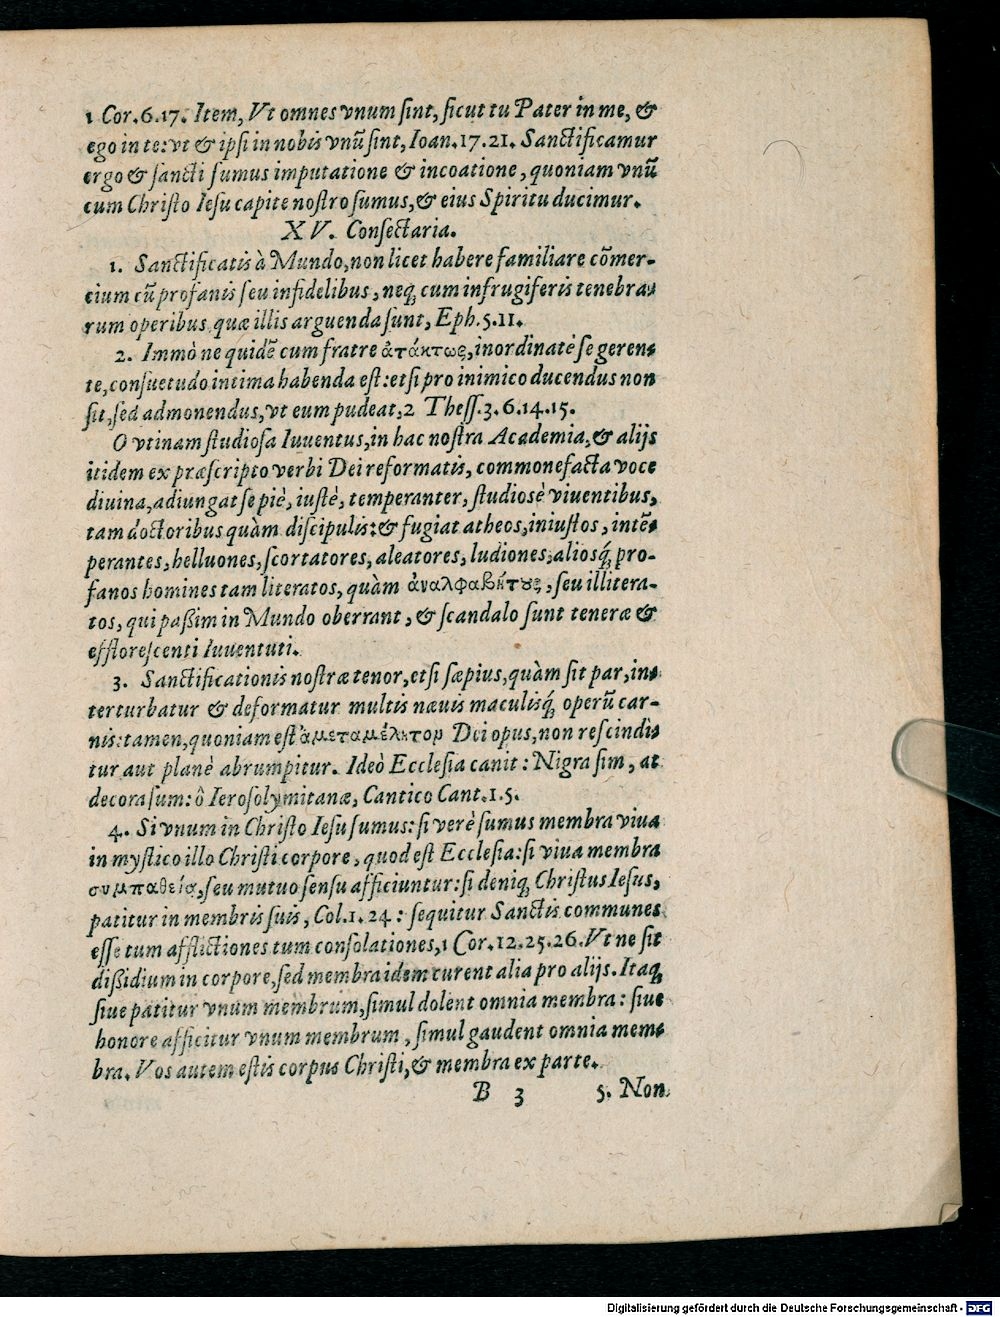 1 Cor. 6.17. Item, Vt omnes vnum sint, sicut tu Pater in me, &
ego in te: vt & ipsi in nobis vnũ sint, Ioan. 17.21. Sanctificamur
ergo & sancti sumus imputatione & incoatione, quoniam vnũ
cum Christo Iesu capite nostro sumus, & eius Spiritu ducimur.
XV. Consectaria.
1. Sanctificatis à Mundo, non licet habere familiare cõmer-
cium cũ profanis seu infidelibus, neq; cum infrugiferis tenebra-
rum operibus quæ illis arguenda sunt, Eph. 5.11.
2. Immò ne quidẽ cum fratre ἀτάκτως, inordinatè se geren-
te, consuetudo intima habenda est: etsi pro inimico ducendus non
sit, sed admonendus, vt eum pudeat, 2 Thess. 3.6.14.15.
O vtinam studiosa Iuuentus, in hac nostra Academia, & alijs
itidem ex præscripto verbi Dei reformatis, commonefacta voce
diuina, adiungat se piè, iustè, temperanter, studiosè viuentibus,
tam doctoribus quàm discipulis: & fugiat atheos, iniustos, intẽ-
perantes, helluones, scortatores, aleatores, ludiones, aliosq́; pro-
fanos homines tam literatos, quàm ἀναλφαβήτους, seu illitera-
tos, qui paßim in Mundo oberrant, & scandalo sunt teneræ &
efflorescenti Iuuentuti.
3. Sanctificationis nostræ tenor, etsi sæpius, quàm sit par, in-
terturbatur & deformatur multis næuis maculisq́; operũ car-
nis: tamen, quoniam est ἀμεταμέλητον Dei opus, non rescindi-
tur aut planè abrumpitur. Ideò Ecclesia canit: Nigra sim, at
decora sum: ô Ierosolymitanæ, Cantico Cant. 1.5.
4. Si vnum in Christo Iesu sumus: si verè sumus membra viua
in mystico illo Christi corpore, quod est Ecclesia: si viua membra
συμπαθείᾳ, seu mutuo sensu afficiuntur: si deniq; Christus Iesus,
patitur in membris suis, Col. 1.24: sequitur Sanctis communes
esse tum afflictiones tum consolationes, 1 Cor. 12.25.26. Vt ne sit
dißidium in corpore, sed membra idem curent alia pro alijs. Itaq;
siue patitur vnum membrum, simul dolent omnia membra: siue
honore afficitur vnum membrum, simul gaudent omnia mem-
bra. Vos autem estis corpus Christi, & membra ex parte.
B 3 5. Non
Digitalisierung gefördert durch die Deutsche Forschungsgemeinschaft - DFG